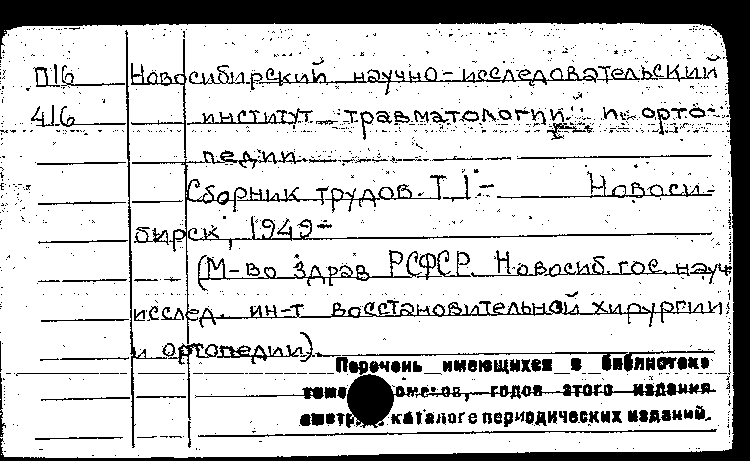 П16 Новосибирский научно-исследовательский
416 институт травматологии и орто-
педии
Сборник трудов. Т. 1- Новоси-
бирск, 1949-
(М-во здрав РСФСР. Новосиб. гос. науч
исслед. ин-т восстановительной хирургии
и ортопедии).
Перечень имеющихся в библиотеке
годов этого издания
каталоге периодических изданий.